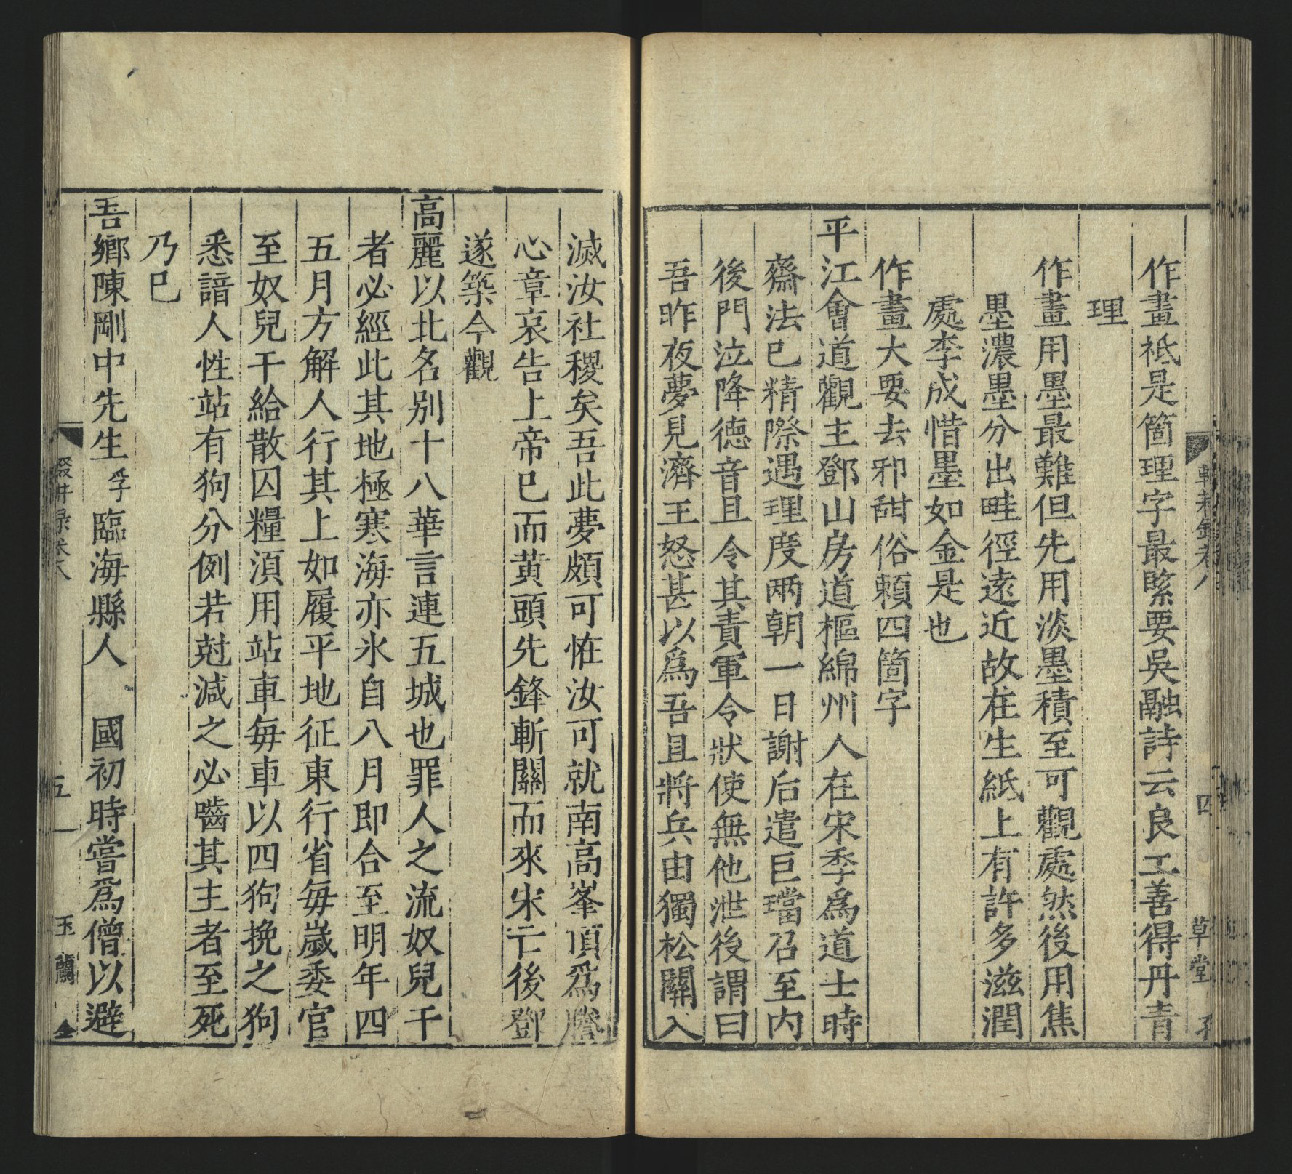 作畫祗是箇理字最緊要吳融詩云良工善得丹青
理
作畫用墨最難但先用淡墨積至可觀處然後用焦
墨濃墨分出畦徑遠近故在生紙上有許多滋潤
處李成惜墨如金是也
作畫大要去邪甜俗賴四箇字
平江會道觀主鄧山房道樞綿州人在宋季為道士時
齋法已精際遇理度兩朝一日謝后遣巨璫召至內
後門泣降德音且令其責軍令狀使無他泄後謂曰
吾昨夜夢見濟王怒甚以為吾且將兵由獨松關入
滅汝社稷矣吾此夢頗可恠汝可就南高峯頂為謄
心章哀告上帝已而黃頭先鋒斬關而來宋亡後鄧
遂築今觀
高麗以北名别十八華言連五城也罪人之流奴兒干
者必經此其地極寒海亦氷自八月即合至明年四
五月方解人行其上如履平地征東行省每歲委官
至奴兒干給散囚糧湏用站車每車以四狗挽之狗
悉諳人性站有狗分例若尅減之必嚙其主者至死
乃已
吾鄉陳剛中先生孚臨海縣人 國初時嘗為僧以避
輟耕錄卷八
五
玉蘭
四
草堂